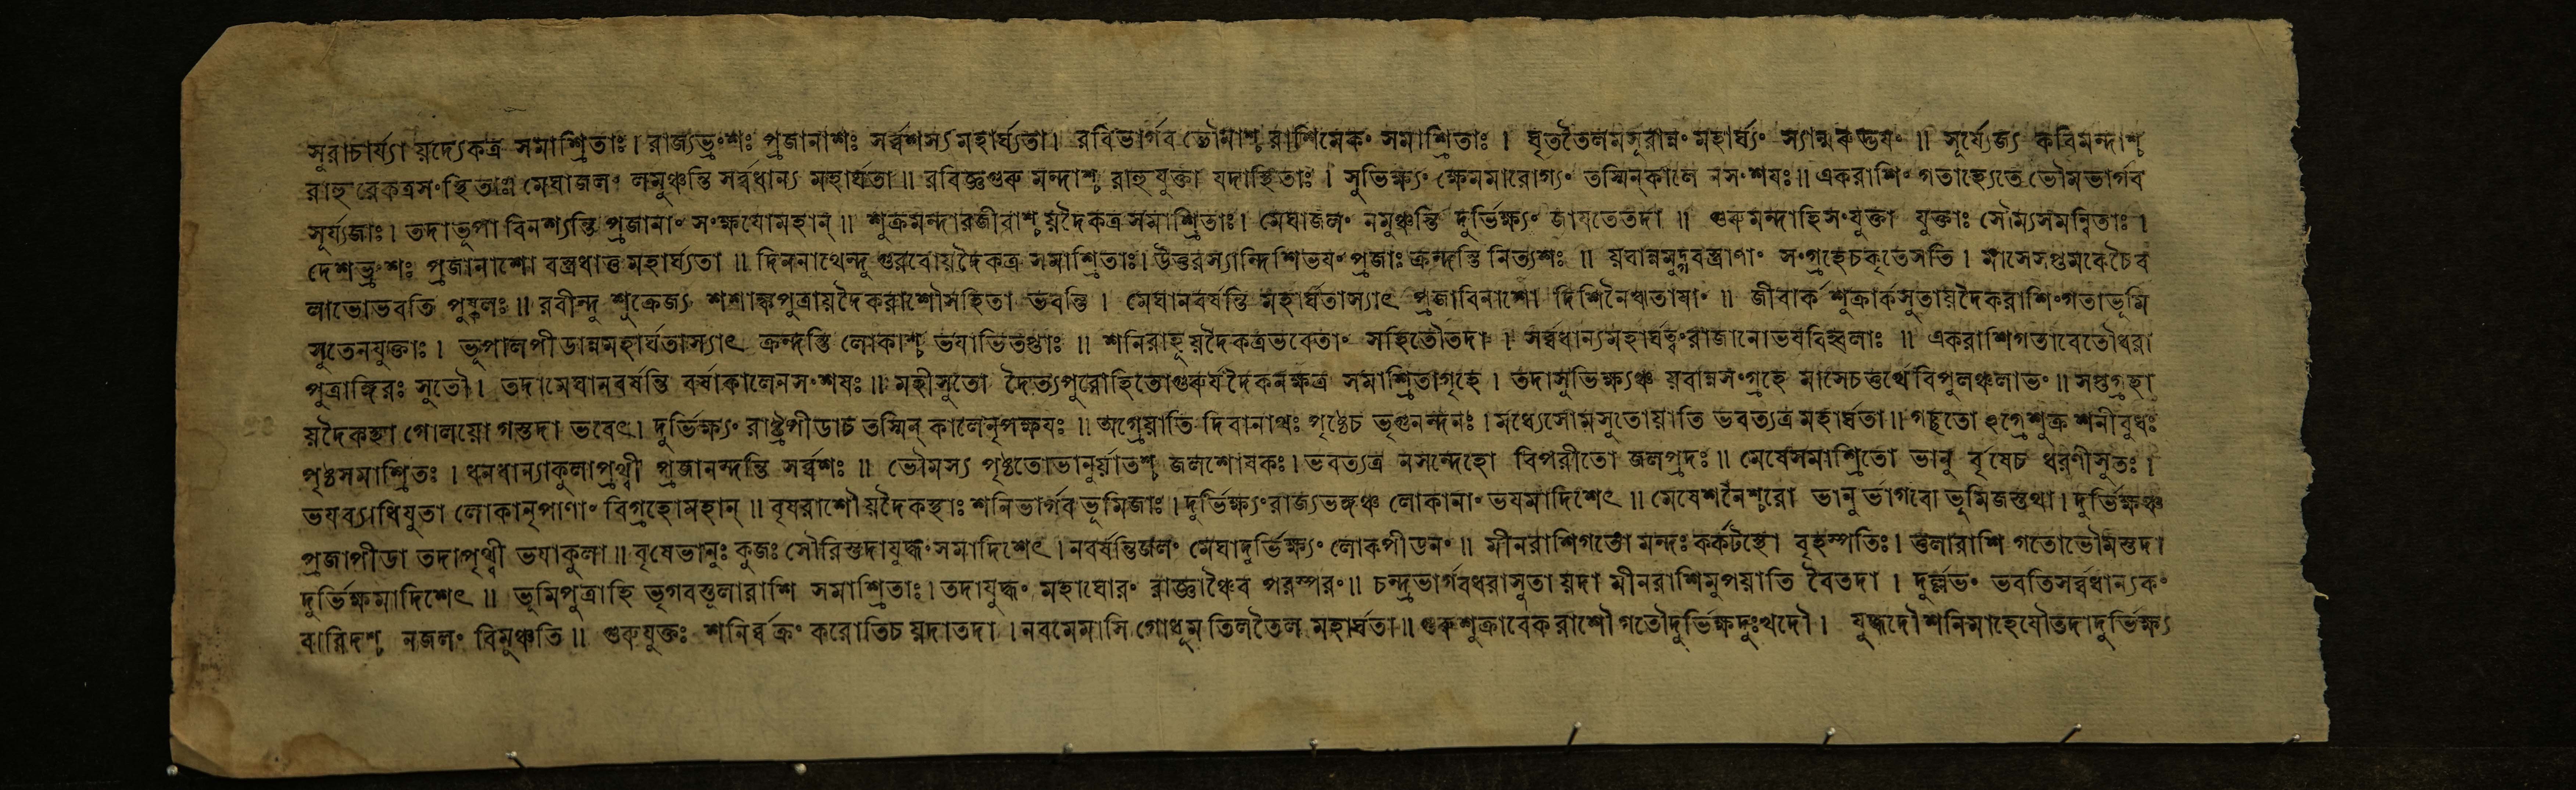 সুরাচার্য্যা য়দ্যেকত্র সমাশ্রিতাঃ। রাজ্যভ্রংশঃ প্রজানাশঃ সর্ব্বশস্য মহার্ঘ্যতা। রবিভার্গব ভৌমাশ্চ রাশিমেকং সমাশ্রিতাঃ । ঘৃততৈলমসূরান্নং মহার্ঘ্যং স্যান্ন ॥ সূর্য্যেজ্য কবিমন্দাশ্চ
রাহুরেকত্রসংস্থিতাঃ। মেঘাজলং লমুঞ্চন্তি সর্ব্বধান্য মহার্ঘতা ॥ রবিজ্ঞগুরু মন্দাশ্চ রাহুযুক্তা যদাস্থিতাঃ । সুভিক্ষ্যং ক্ষেমমারোগ্যং তস্মিন্কালে নসংশযঃ॥ একরাশিং গতাহ্যেতে ভৌমভার্গব
সূর্য্যজাঃ। তদাভূপা বিনশ্যন্তি প্রজানাং সংক্ষযোমহান্ ॥ শুক্রমন্দারজীবাশ্চ য়দৈকত্রসমাশ্রিতাঃ। মেঘাজলং নমুঞ্চন্তি দুর্ভিক্ষ্যং জাযতেতদা ॥ গুরুমন্দাহিসংযুক্তা যুক্তাঃ সৌম্যসমন্বিতাঃ ।
দেশভ্রংশঃ প্রজানাশো বস্ত্রধাত্ত মহার্ঘ্যতা ॥ দিননাথেন্দু গুরবোয়দৈকত্র সমাশ্রিতাঃ। উত্তরস্যান্দিশিভযং প্রজাঃ ক্রন্দন্তি নিত্যশঃ ॥ য়বান্নমুদ্গবস্ত্রাণাং সংগ্রহেচকৃতেসতি । মাসেসপ্তমকেচৈব
লাভোভবতি পুষ্কলঃ ॥ রবীন্দু শুক্রেজ্য শশাঙ্কপুত্রায়দৈকরাশৌসহিতা ভবন্তি । মেঘানবর্ষন্তি মহার্ঘতাস্যাৎ প্রজাবিনাশো দিশিনৈঋতাযাং ॥ জীবার্ক শুক্রার্কসুতায়দৈকরাশিংগতাভূমি
সুতেনযুক্তাঃ । ভূপালপীডান্নমহার্ঘতাস্যাৎ ক্রন্দন্তি লোকাশ্চ ভযাভিতপ্তাঃ ॥ শনিরাহূয়দৈকত্রভবেতাং সহিতৌতদা । সর্ব্বধান্যমহার্ঘত্বংরাজানোভযবিহ্বলাঃ ॥ একরাশিগতাবেতৌধরা
পুত্রাঙ্গিরঃ সুতৌ। তদামেঘানবর্ষন্তি বর্ষাকালেনসংশযঃ ॥ মহীসুতো দৈত্যপুরোহিতোগুরুর্য দৈকনক্ষত্র সমাশ্রিতাগৃহে । তদাসুভিক্ষ্যঞ্চ য়বান্নসংগ্রহে মাসেচতুর্থে বিপুলঞ্চলাভং ॥ সপ্তগ্রহা
য়দৈকস্থা গোলয়ো গস্তদা ভবেৎ। দুর্ভিক্ষ্যং রাষ্ট্রপীডাচ তস্মিন্ কালেনৃপক্ষযঃ ॥ অগ্রেয়াতি দিবানাথঃ পৃষ্ঠেচ ভৃগুনন্দনঃ। মধ্যেসোমসুতোয়াতি ভবত্যত্র মহার্ঘতা ॥ গচ্ছতো হগ্রেশুক্র শনীবুধঃ
পৃষ্ঠসমাশ্রিতঃ । ধনধান্যাকুলাপৃথ্বী প্রজানন্দন্তি সর্ব্বশঃ ॥ ভৌমস্য পৃষ্ঠতোভানুর্য়াতশ্চ জলশোষকঃ। ভবত্যত্র নসন্দেহো বিপরীতো জলপ্রদঃ॥ মেষেসমাশ্রিতো ভানু র্বৃষেচ ধরণীসুতঃ ।
ভযব্যাধিযুতা লোকানৃপাণাং বিগ্রহোমহান্ ॥ বৃষরাশৌয়দৈকস্থাঃ শনিভার্গব ভূমিজাঃ। দুর্ভিক্ষ্যংরাজ্যভঙ্গঞ্চ লোকানাং ভযমাদিশেৎ ॥ মেষেশনৈশ্চরো ভানু র্ভাগবো ভূমিজস্তথা। দুর্ভিক্ষঞ্চ
প্রজাপীডা তদাপৃথ্বী ভযাকুলা ॥ বৃষেভানুঃ কুজঃ সৌরিস্তদাযুদ্ধং সমাদিশেৎ। নবর্ষন্তিজলং মেঘাদুর্ভিক্ষ্যং লোকপীডনং ॥ মীনরাশিগতো মন্দঃ কর্কটস্থো বৃহস্পতিঃ। তুলারাশি গতোভৌমস্তদা
দুর্ভিক্ষমাদিশেৎ ॥ ভূমিপুত্রাহি ভৃগবস্তুলারাশি সমাশ্রিতাঃ। তদাযুদ্ধং মহাঘোরং রাজ্ঞাঞ্চৈব পরস্পরং॥ চন্দ্রভার্গবধরাসুতা য়দা মীনরাশিমুপয়াতি বৈতদা । দুর্ল্লভং ভবতিসর্ব্বধান্যকং
বারিদশ্চ নজলং বিমুঞ্চতি ॥ গুরুযুক্তঃ শনির্ব্বক্রং করোতিচ য়দাতদা । নবমেমাসি গোধূম তিলতৈল মহার্ঘতা ॥ গুরুশুক্রাবেকরাশৌ গতৌদুর্ভিক্ষদুঃখদৌ । যুদ্ধদৌ শনিমাহেযৌতদাদুর্ভিক্ষ্য